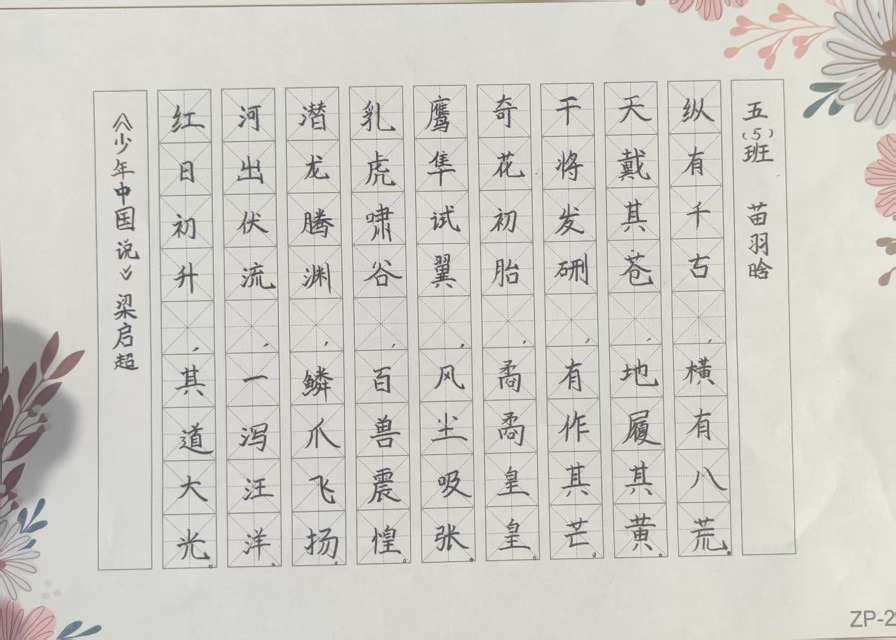 《少年中国说》梁启超
红日初升，其道大光。
河出伏流，一泻汪洋。
潜龙腾渊，鳞爪飞扬。
乳虎啸谷，百兽震惶。
鹰隼试翼，风尘吸张。
奇花初胎，矞矞皇皇。
干将发硎，有作其芒。
天戴其苍，地履其黄。
纵有千古，横有八荒。
五（5）班 苗羽晗
ZP-2